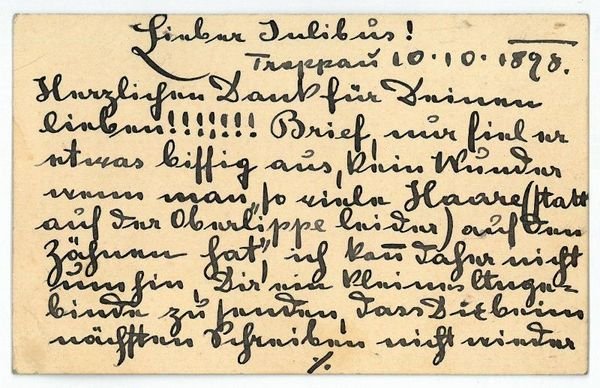 Lieber Julibus!
Troppau 10.10.1898.
Herzlichen Dank für Deinen
lieben!!!!!!! Brief, nur fiel er
etwas biffig aus, kein Wunder
wenn man „so viele Haare (statt
auf der Oberlippe leider) auf den
Zähnen hat", ich kan̄ daher nicht
umhin, Dir, ein kleines Ange-
binde zu senden, dass Dir beim
nächsten Schreiben nicht wieder
%